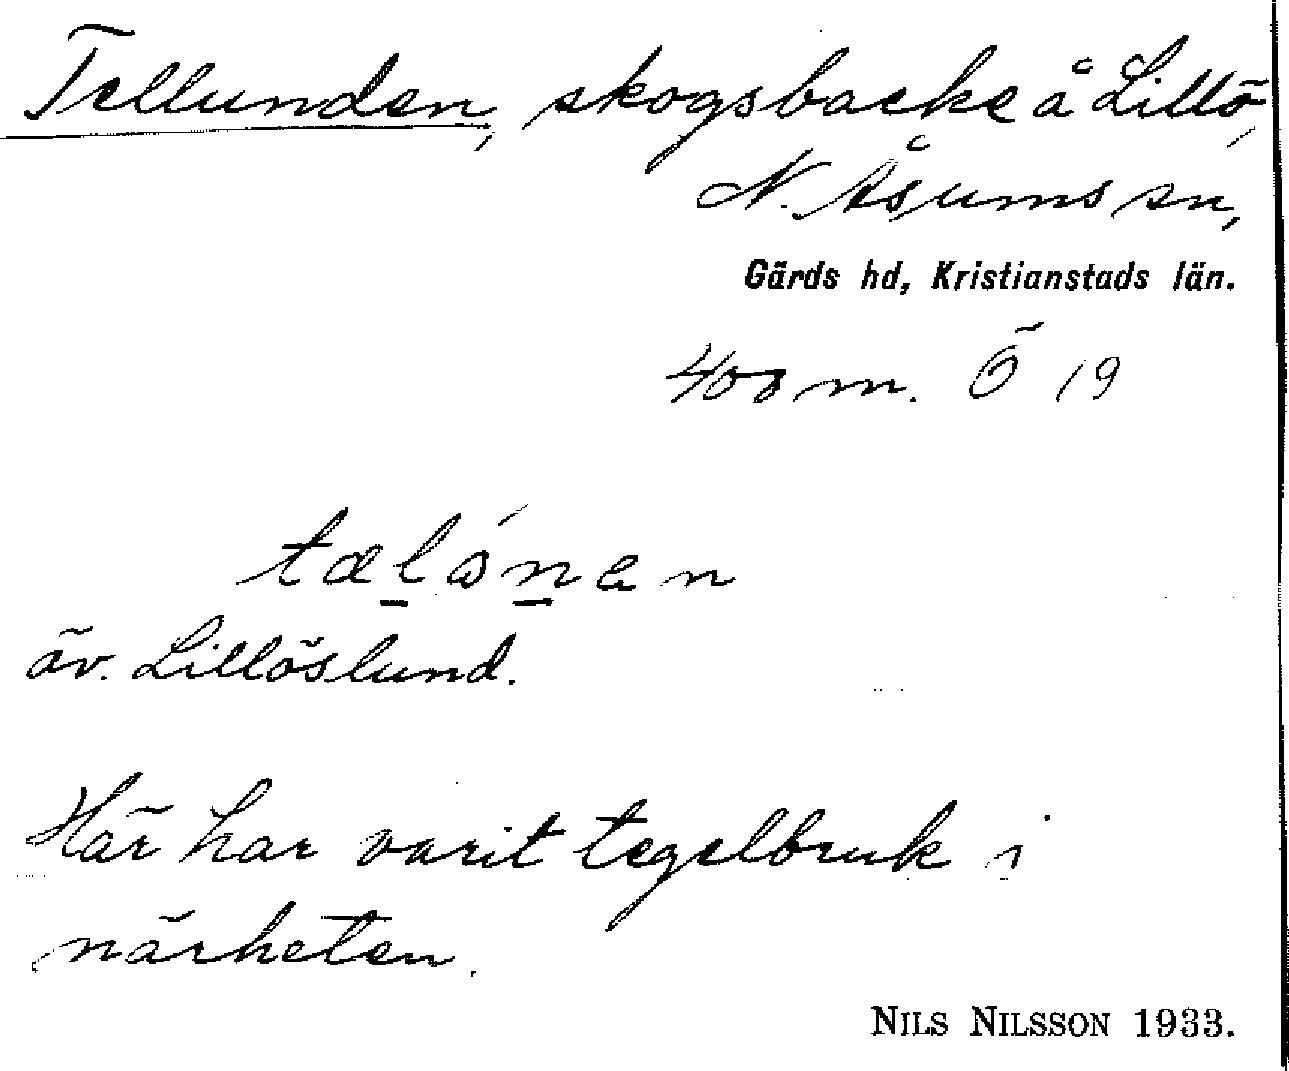 Tellunden, skogsbacke å Lillö,
N. Åsums sn,
Gärds hd, Kristianstads län.
400 m. Ö 19
äv. Lillöslund.
Här har varit tegelbruk i
närheten.
NILS NILSSON 1933.